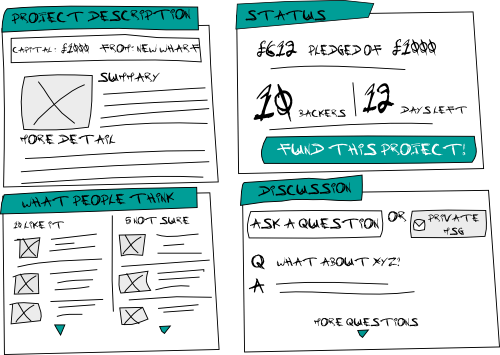 PROJECT DESCRIPTION
CAPITAL: £1000 FROM: NEW WHARF
SUMMARY
MORE DETAIL
STATUS
£612 PLEDGED OF £1000
10 BACKERS 12 DAYS LEFT
FUND THIS PROJECT!
WHAT PEOPLE THINK
20 LIKE IT 5 NOT SURE
DISCUSSION
ASK A QUESTION OR PRIVATE MSG
Q WHAT ABOUT XYZ?
A
MORE QUESTIONS